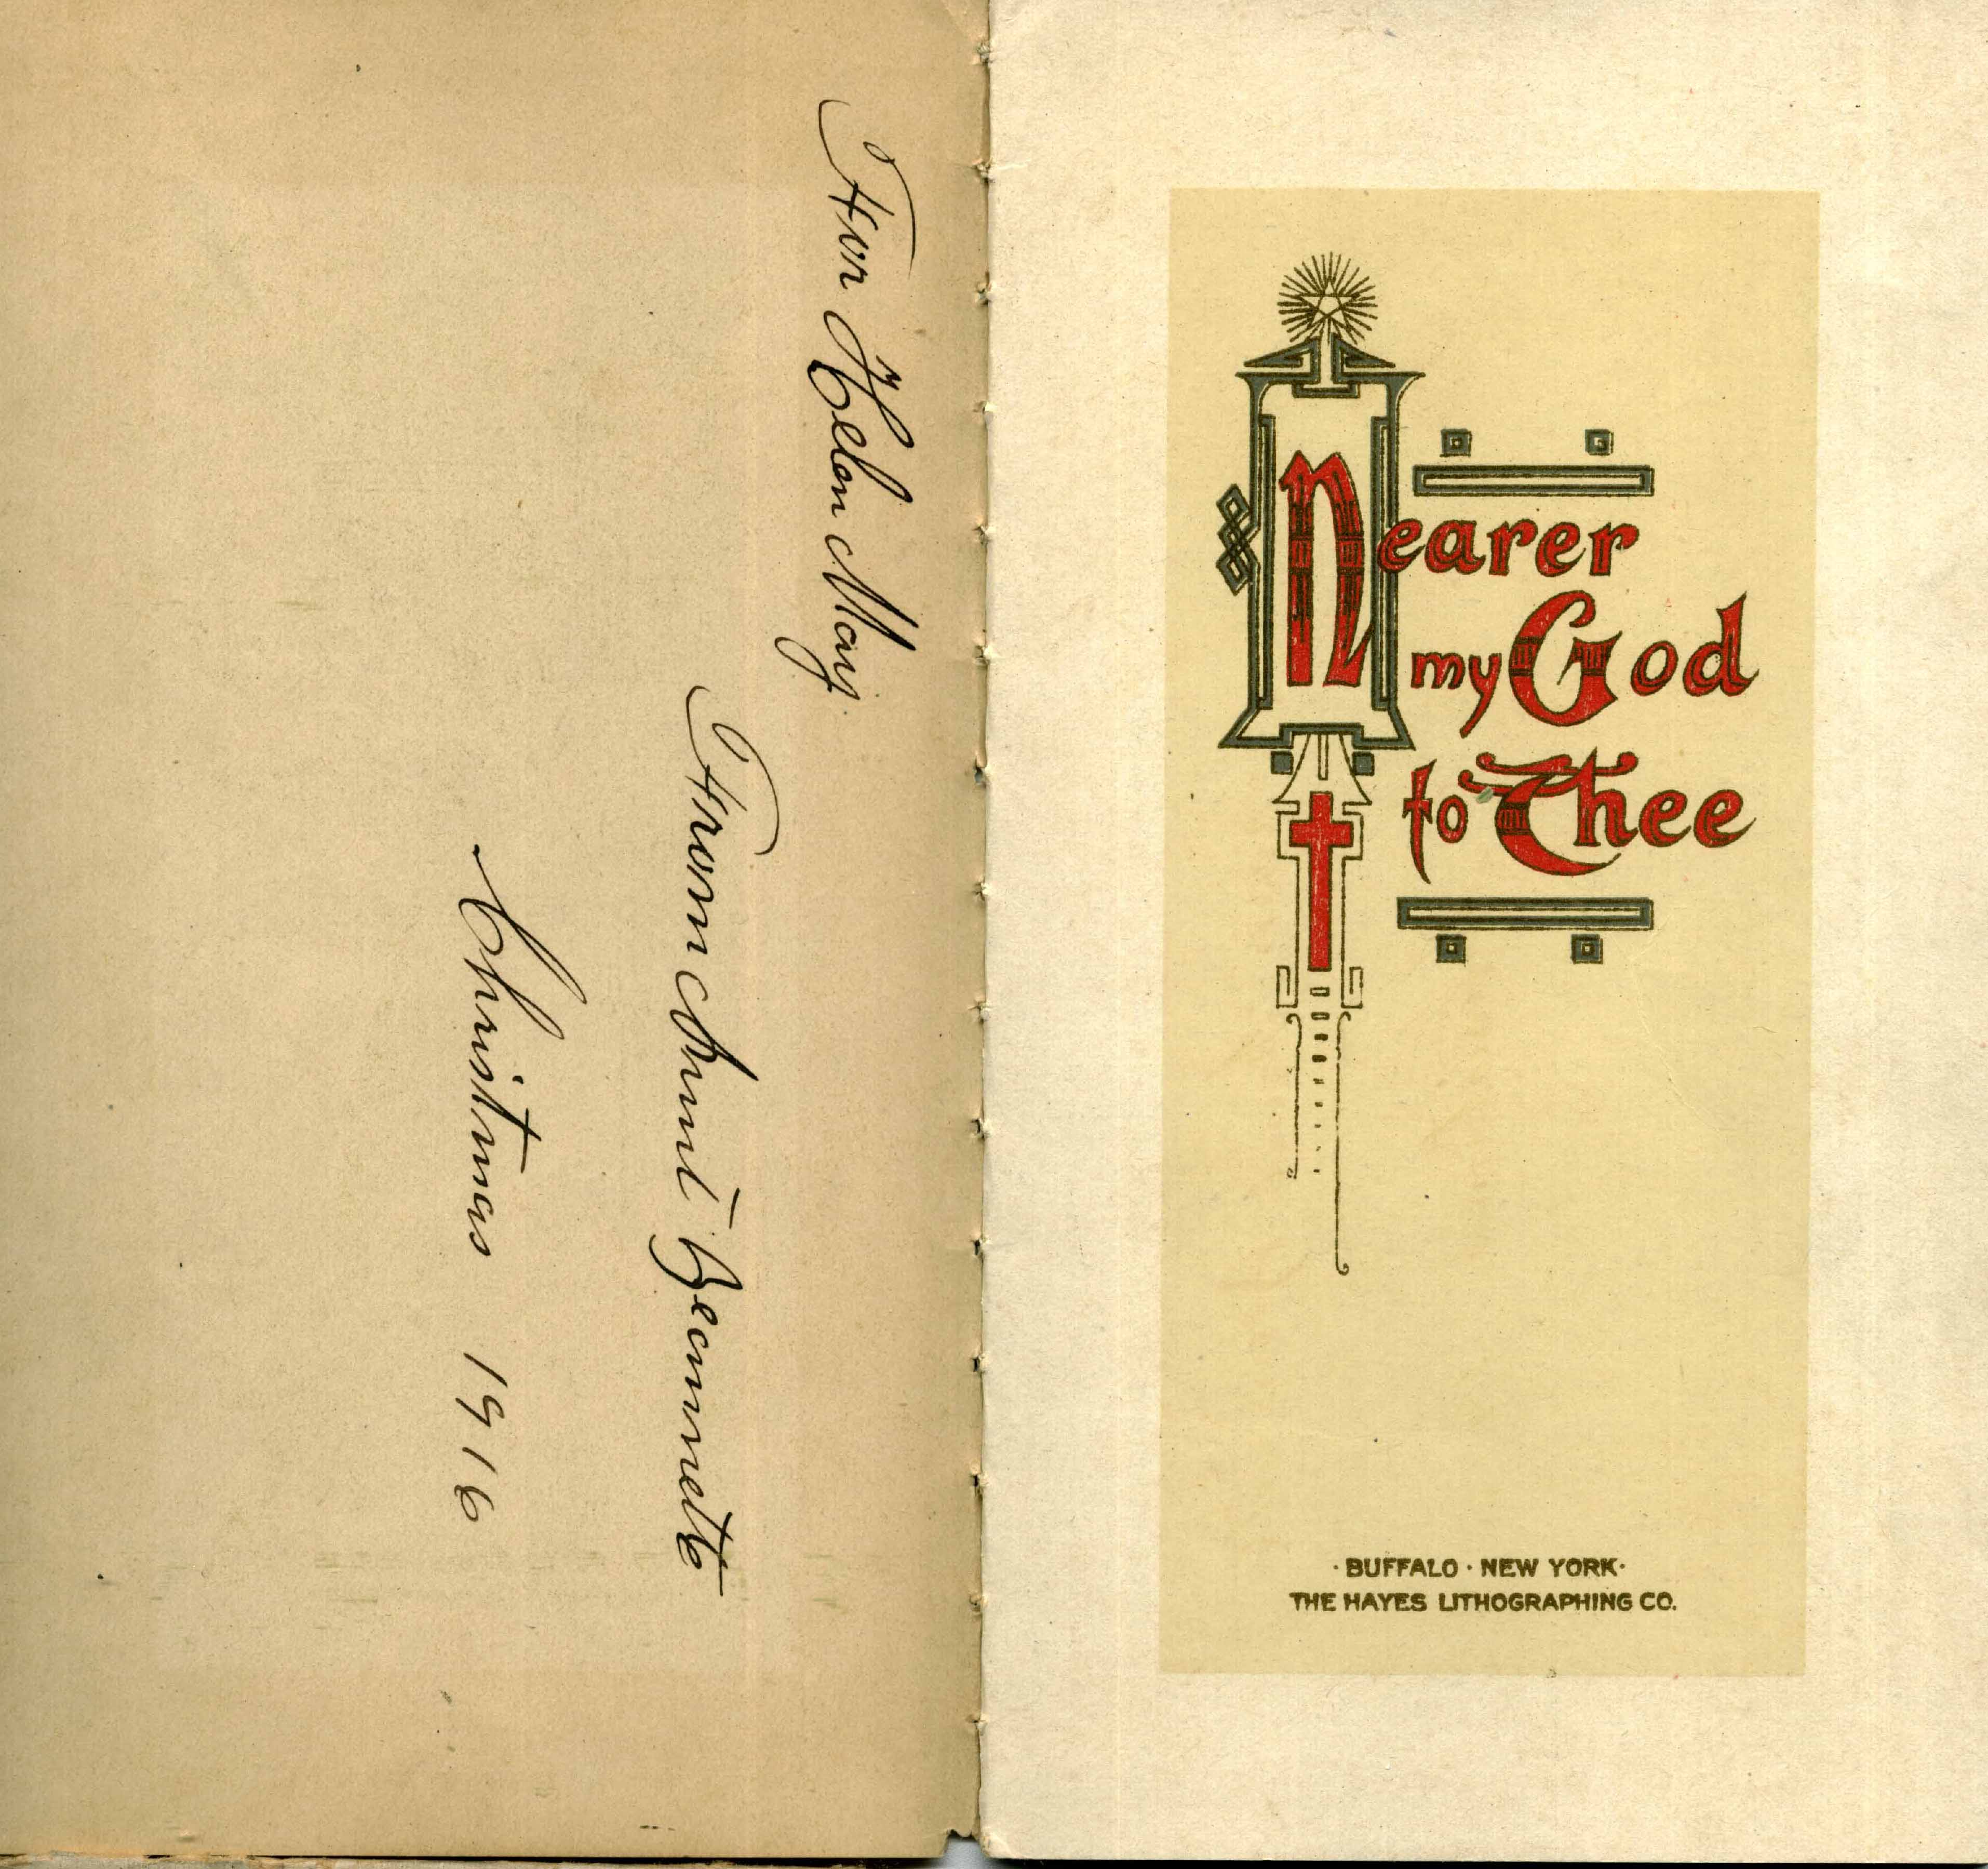 For Helen May.
From Aunt Jeannette
Christmas 1916
Nearer
my God
to Thee
· BUFFALO · NEW YORK ·
THE HAYES LITHOGRAPHING CO.